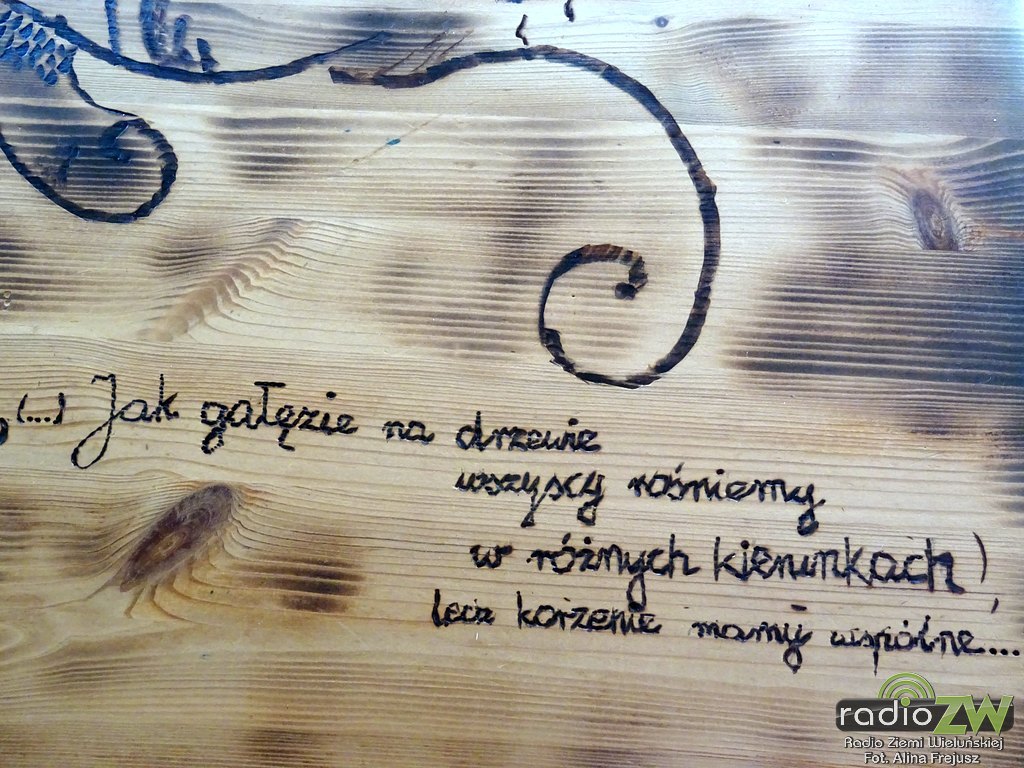 „(...) Jak gałęzie na drzewie
wszyscy rośniemy
w różnych kierunkach,
lecz korzenie mamy wspólne...
radioZW
Radio Ziemi Wieluńskiej
Fot. Alina Frejusz